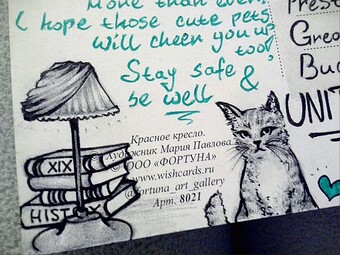 More than ever.
I hope those cute pets
will cheer you up
too!
Stay safe &
be well
Красное кресло.
Художник Мария Павлова
© ООО «ФОРТУНА»
www.wishcards.ru
@fortuna_art_gallery
Арт. 8021
XIX
HIST X
Grea
UNIT